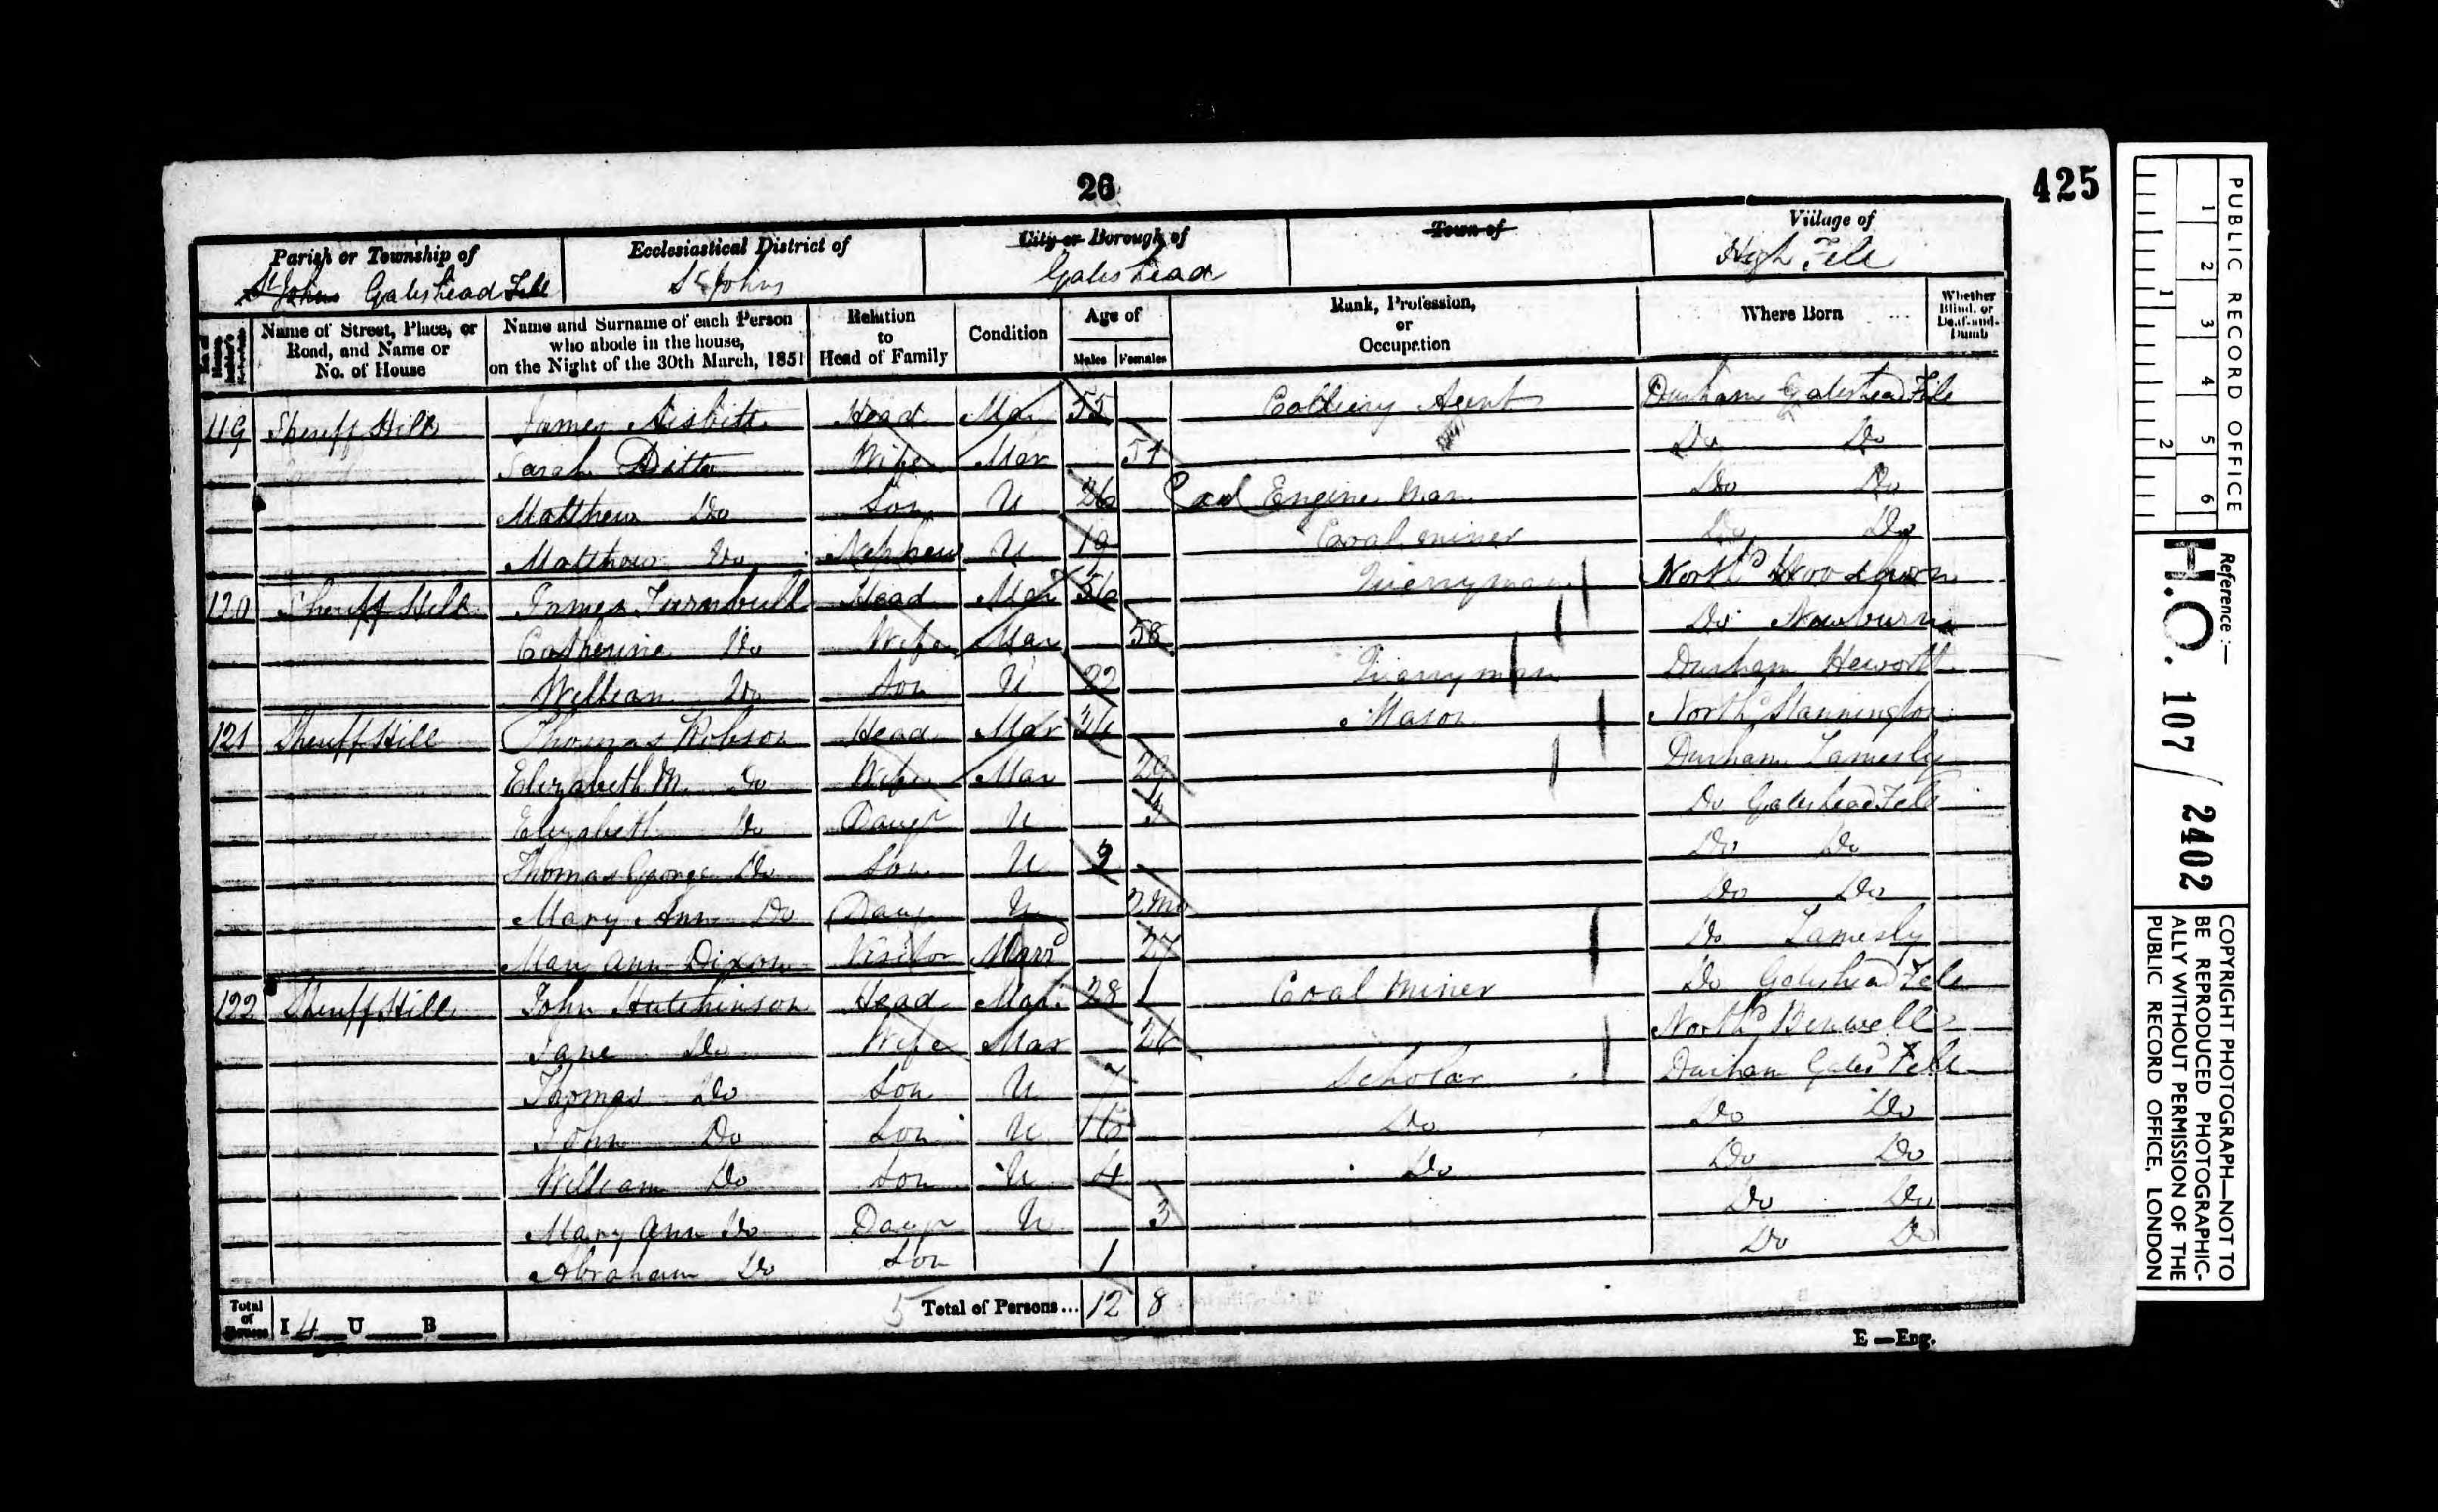 26
425
Parish or Township of
St Johns Gateshead Fell
Ecclesiastical District of
St Johns
City or Borough of
Gateshead
Town of
Village of
High Fell
Name of Street, Place, or Road, and Name or No. of House
Name and Surname of each Person who abode in the house, on the Night of the 30th March, 1851
Relation to Head of Family
Condition
Age of
Males Females
Rank, Profession, or Occupation
Where Born
Whether Blind, or Deaf-and-Dumb
119 Sheriff Hill James Nisbitt Head Mar 55 Colliery Agent Durham Gateshead Fell
Sarah Ditto Wife Mar Do Do
Matthew Do Son U 26 Coal Engine Man Do Do
Matthew Do Nephew U 19 Coal miner Do Do
120 Sheriff Hill James Turnbull Head Mar 56 Northd
Catherine Do Wife Mar 58 Do Newburn
William Do Son U 22 Durham Heworth
121 Sheriff Hill Thomas Robson Head Mar Mason Northd Stannington
Elizabeth M. Do Wife Mar 29 Durham Lamesly
Elizabeth Do Daugr U Do Gateshead Fell
Thomas George Do Son U Do Do
Mary Ann Do Daugr U 3 Mo Do Do
Mary Ann Dixon Visitor Marrd 27 Do Lamesly
122 Sheriff Hill John Hutchinson Head Mar 28 Coal Miner Do Gateshead Fell
Jane Do Wife Mar 26 Northd Benwell
Thomas Do Son U 7 Scholar Durham Gatesd Fell
John Do Son U Do Do Do
William Do Son U 4 Do Do Do
Mary Ann Do Daugr U 3 Do Do
Abraham Do Son 1 Do Do
Total of Houses I 4 U B 5 Total of Persons... 12 8
E—Eng.
PUBLIC RECORD OFFICE
1 2 3 4 5 6
1 2
Reference :—
H.O. 107/2402
COPYRIGHT PHOTOGRAPH—NOT TO
BE REPRODUCED PHOTOGRAPHIC-
ALLY WITHOUT PERMISSION OF THE
PUBLIC RECORD OFFICE, LONDON